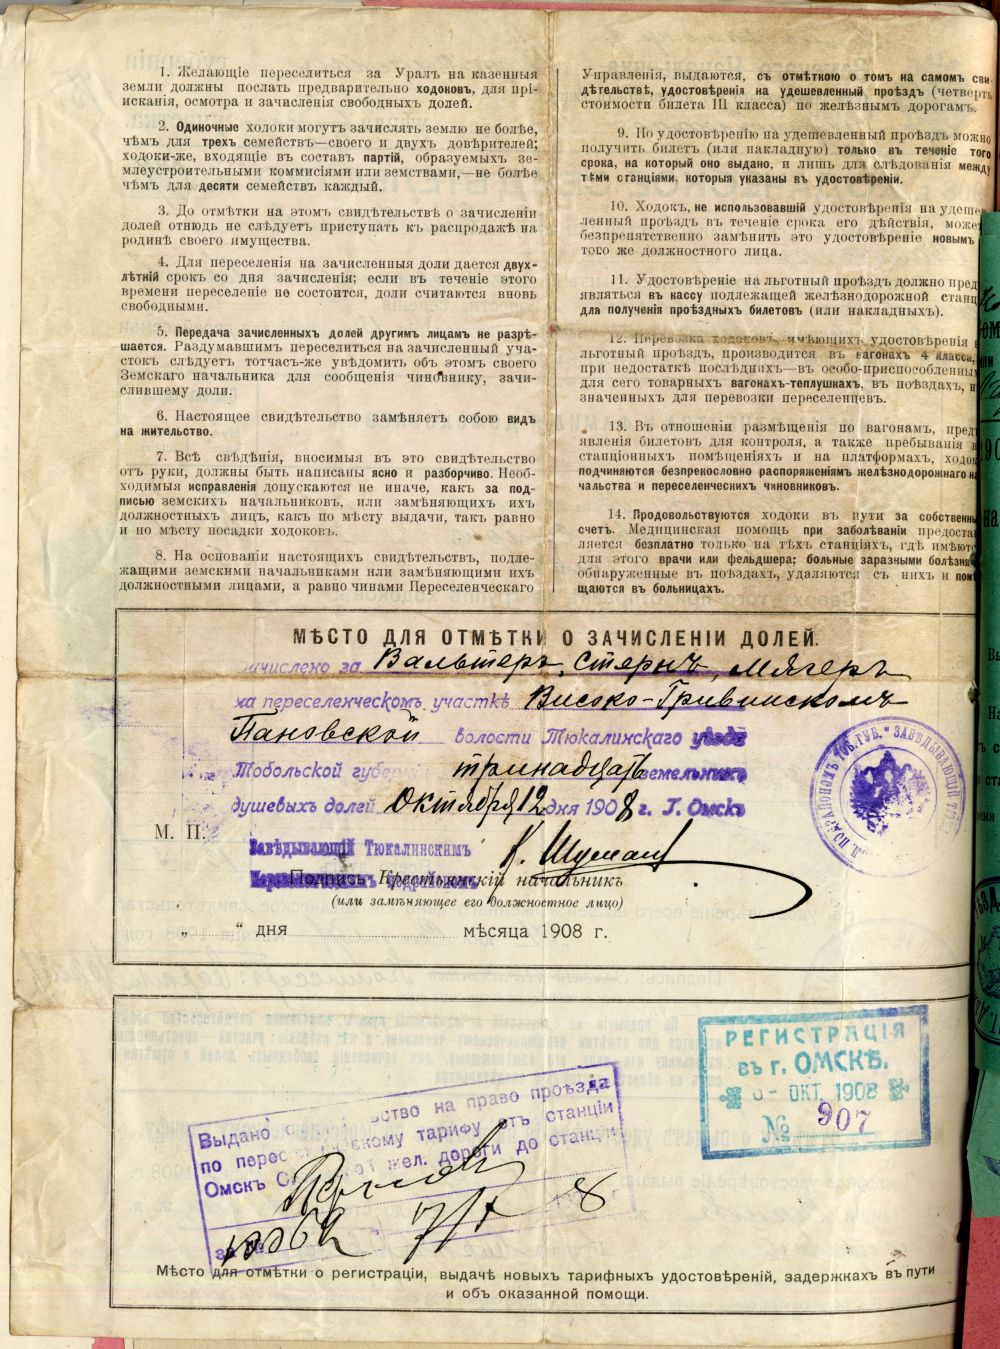 1. Желающіе переселиться за Уралъ на казенныя
земли должны послать предварительно ходоковъ, для прі-
исканія, осмотра и зачисленія свободныхъ долей.
2. Одиночные ходоки могутъ зачислять землю не болѣе,
чѣмъ для трехъ семействъ—своего и двухъ довѣрителей;
ходоки-же, входящіе въ составъ партій, образуемыхъ зе-
млеустроительными коммисіями или земствами,—не болѣе
чѣмъ для десяти семействъ каждый.
3. До отмѣтки на этомъ свидѣтельствѣ о зачисленіи
долей отнюдь не слѣдуетъ приступать къ распродажѣ на
родинѣ своего имущества.
4. Для переселенія на зачисленныя доли дается двух-
лѣтній срокъ со дня зачисленія; если въ теченіе этого
времени переселеніе не состоится, доли считаются вновь
свободными.
5. Передача зачисленныхъ долей другимъ лицамъ не разрѣ-
шается. Раздумавшимъ переселиться на зачисленный уча-
стокъ слѣдуетъ тотчасъ-же увѣдомить объ этомъ своего
Земскаго начальника для сообщенія чиновнику, зачи-
слившему доли.
6. Настоящее свидѣтельство замѣняетъ собою видъ
на жительство.
7. Всѣ свѣдѣнія, вносимыя въ это свидѣтельство
отъ руки, должны быть написаны ясно и разборчиво. Необ-
ходимыя исправленія допускаются не иначе, какъ за под-
писью земскихъ начальниковъ, или замѣняющихъ ихъ
должностныхъ лицъ, какъ по мѣсту выдачи, такъ равно
и по мѣсту посадки ходоковъ.
8. На основаніи настоящихъ свидѣтельствъ, подле-
жащими земскими начальниками или замѣняющими ихъ
должностными лицами, а равно чинами Переселенческаго
Управленія, выдаются, съ отмѣткою о томъ на самомъ сви-
дѣтельствѣ, удостовѣренія на удешевленный проѣздъ (четверть
стоимости билета III класса) по желѣзнымъ дорогамъ.
9. По удостовѣренію на удешевленный проѣздъ можно
получить билетъ (или накладную) только въ теченіе того
срока, на который оно выдано, и лишь для слѣдованія между
тѣми станціями, которыя указаны въ удостовѣреніи.
10. Ходокъ, не использовавшій удостовѣренія на удешев-
ленный проѣздъ въ теченіе срока его дѣйствія, може
безпрепятственно замѣнить это удостовѣреніе новымъ
того же должностного лица.
11. Удостовѣреніе на льготный проѣздъ должно пред
являться въ кассу подлежащей желѣзнодорожной станц
для полученія проѣздныхъ билетовъ (или накладныхъ).
12. Перевозка ходоковъ, имѣющихъ удостовѣренія н
льготный проѣздъ, производится въ вагонахъ 4 класса,
при недостаткѣ послѣднихъ—въ особо-приспособленных
для сего товарныхъ вагонахъ-теплушкахъ, въ поѣздахъ, н
значенныхъ для перевозки переселенцевъ.
13. Въ отношеніи размѣщенія по вагонамъ, предъ
явленія билетовъ для контроля, а также пребыванія н
станціонныхъ помѣщеніяхъ и на платформахъ, ходок
подчиняются безпрекословно распоряженіямъ желѣзнодорожнаго на
чальства и переселенческихъ чиновниковъ.
14. Продовольствуются ходоки въ пути за собственны
счетъ. Медицинская помощь при заболѣваніи предоста
ляется безплатно только на тѣхъ станціяхъ, гдѣ имѣютс
для этого врачи или фельдшера; больные заразными болѣзня
обнаруженные въ поѣздахъ, удаляются съ нихъ и помѣ
щаются въ больницахъ.
МѢСТО ДЛЯ ОТМѢТКИ О ЗАЧИСЛЕНІИ ДОЛЕЙ.
ачислено за Вальтеръ, Стернъ, Мягеръ
на переселенческомъ участкѣ Високо-Гривинскомъ
Пановской волости Тюкалинскаго уѣзда
Тобольской губерніи тринадцать земельныхъ
душевыхъ долей Октября 12 дня 1908 г. Г. Омскъ
М. П.
Завѣдывающій Тюкалинскимъ
Подпись Крестьянскій начальникъ
(или замѣняющее его должностное лицо)
„ “ дня мѣсяца 1908 г.
РЕГИСТРАЦІЯ
въ г. ОМСКѢ.
ОКТ. 1908
№ 907
Выдано
ство на право проѣзда
по перес
скому тарифу отъ станціи
Омскъ
жел. дороги до станц
за №
7/X 8
Мѣсто для отмѣтки о регистраціи, выдачѣ новыхъ тарифныхъ удостовѣреній, задержкахъ въ пути
и объ оказанной помощи.